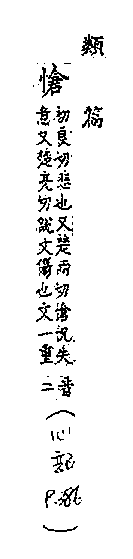 類篇
愴
初良切悲也又楚兩切愴怳失
意又楚亮切說文傷也文一重
音二
(心部
P.386)